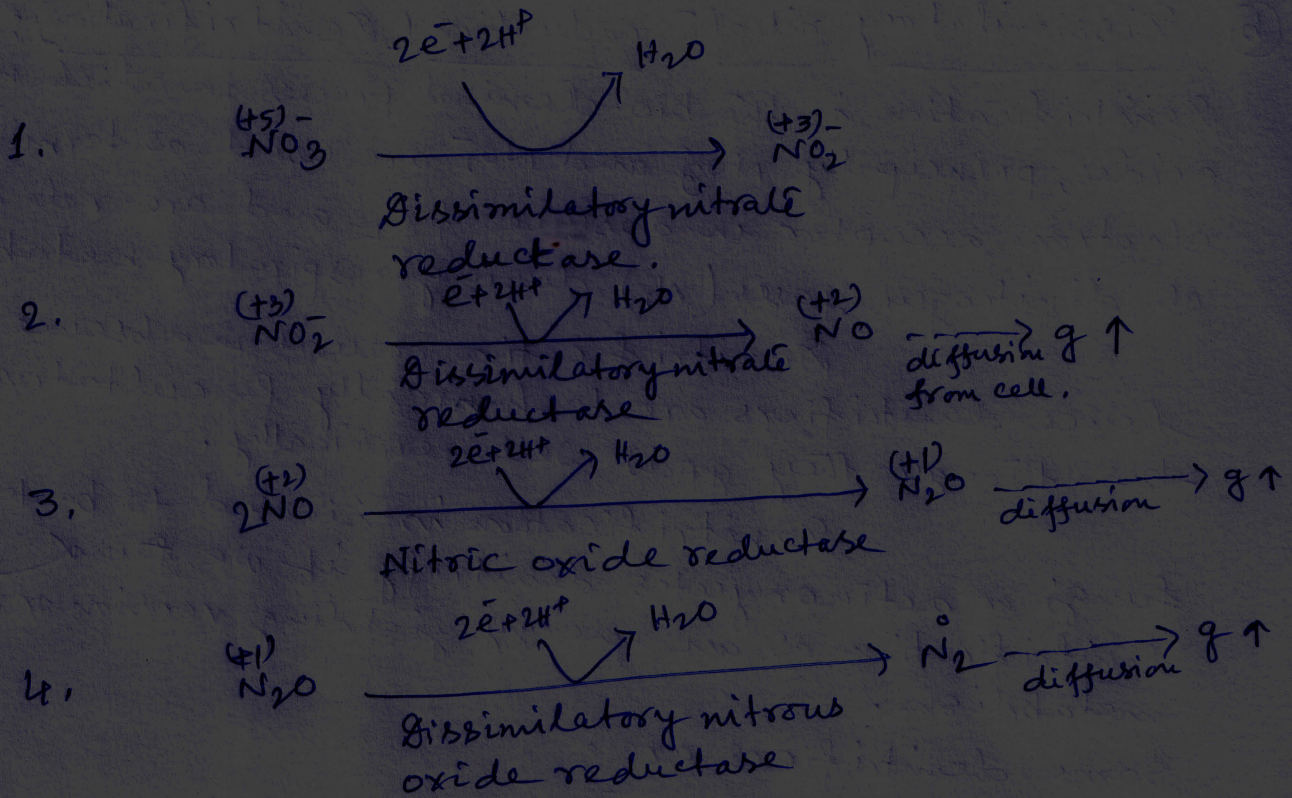 2e⁻+2H⁺ H₂O
1. (+5) NO₃⁻ (+3) NO₂⁻
Dissimilatory nitrate
reductase.
e⁻+2H⁺ H₂O
2. (+3) NO₂⁻ (+2) NO diffusion g ↑
from cell.
Dissimilatory nitrate
reductase
2e⁻+2H⁺ H₂O
3. 2(+2) NO (+1) N₂O diffusion g ↑
Nitric oxide reductase
2e⁻+2H⁺ H₂O
4. (+1) N₂O 0 N₂ diffusion g ↑
Dissimilatory nitrous
oxide reductase